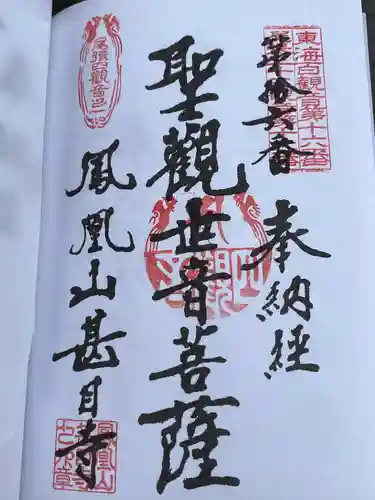 東海百観音第十六番
第拾六番
奉納経
聖觀世音菩薩
尾張四観音之一
鳳凰山甚目寺